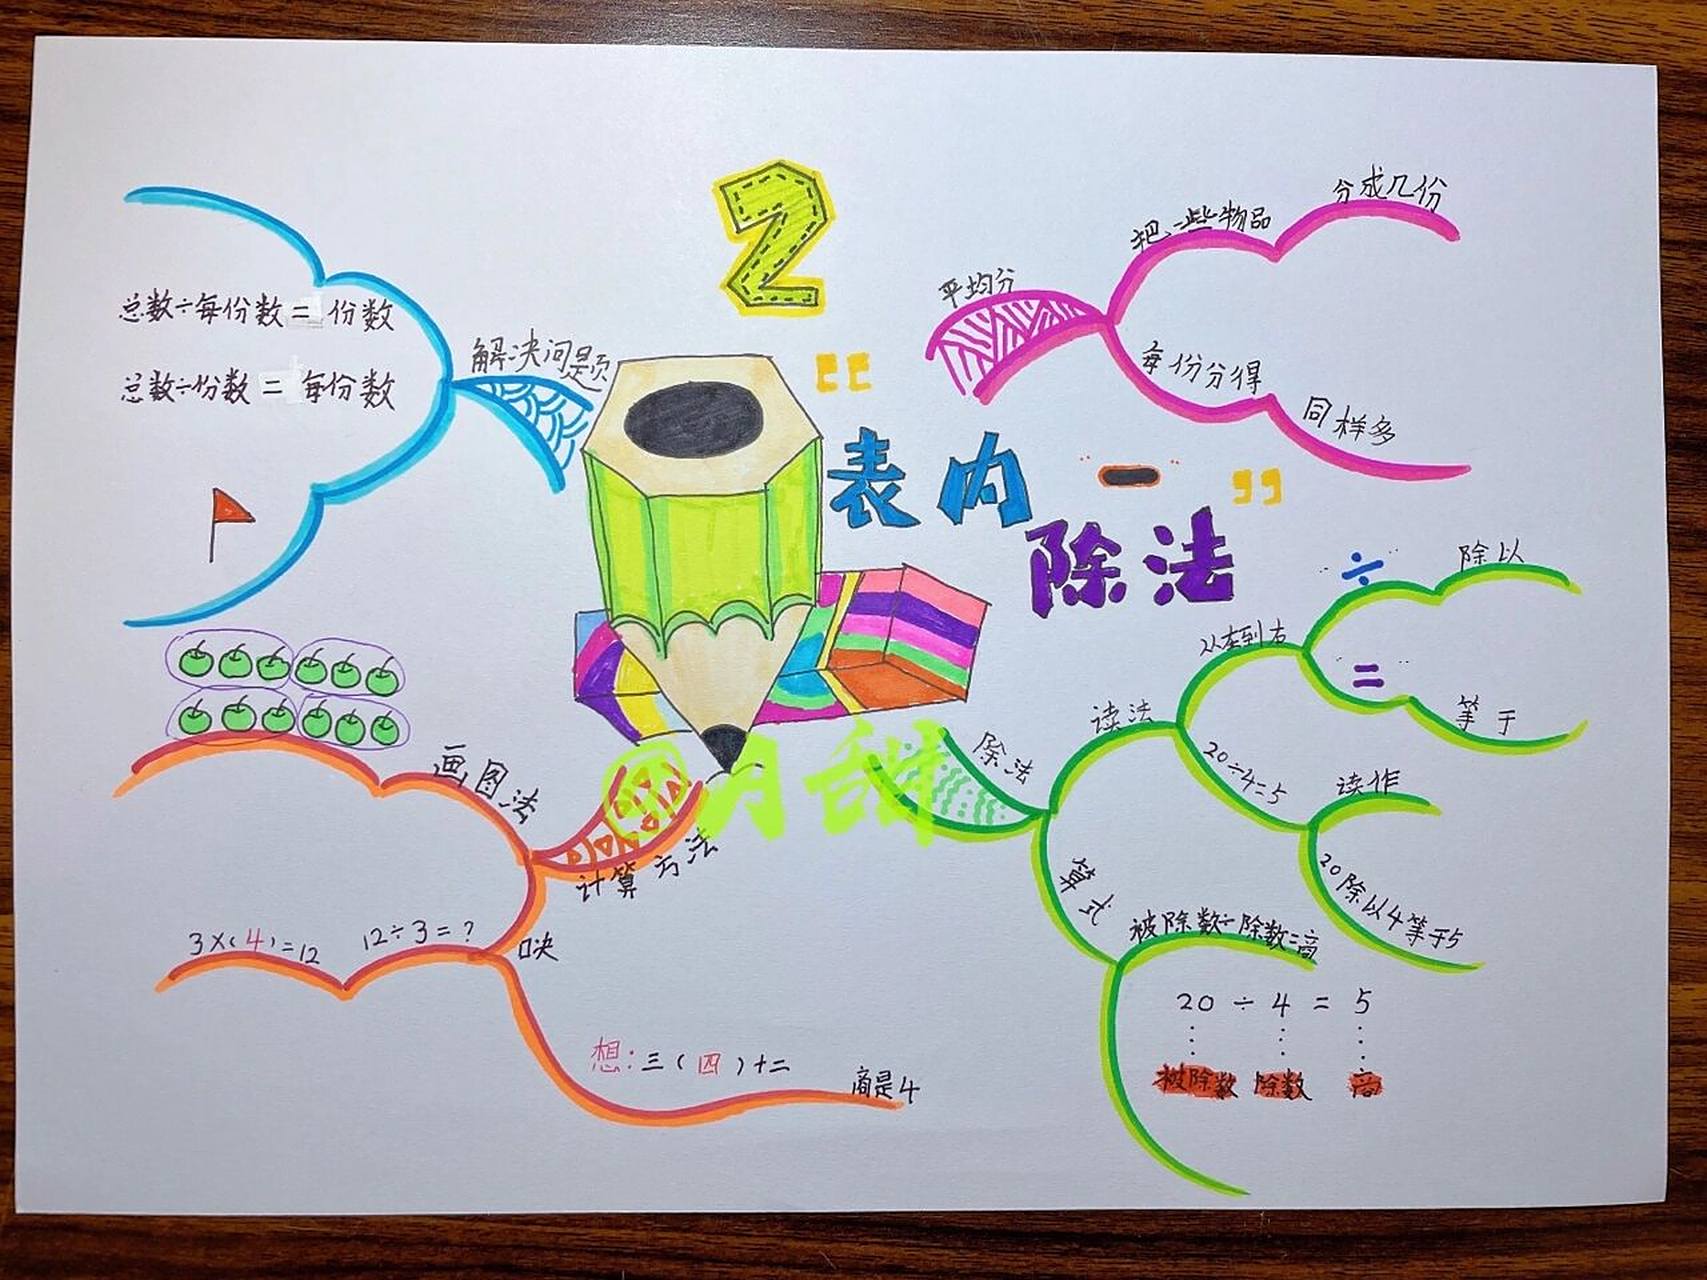 2
“表内一”
除法
平均分
把一些物品
分成几份
每份分得
同样多
解决问题
总数÷每份数=份数
总数÷份数=每份数
除法
读法
从左到右
÷
除以
=
等于
20÷4=5
读作
20除以4等于5
算式
被除数÷除数=商
20÷4=5
被除数 除数 商
计算方法
画图法
口决
12÷3=?
3×(4)=12
想:三(四)十二
商是4
@月甜